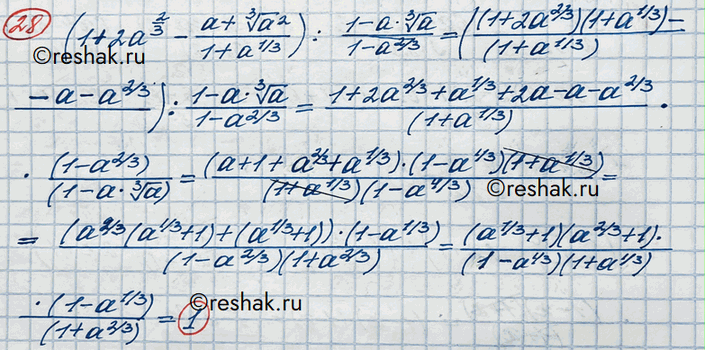 28 (1+2a^{2/3} - \frac{a+\sqrt[3]{a^2}}{1+a^{1/3}}) : \frac{1-a·\sqrt[3]{a}}{1-a^{2/3}} = (\frac{(1+2a^{2/3})(1+a^{1/3})-}{(1+a^{1/3})}
©reshak.ru
\frac{-a-a^{2/3}}{}) : \frac{1-a·\sqrt[3]{a}}{1-a^{2/3}} = \frac{1+2a^{2/3}+a^{1/3}+2a-a-a^{2/3}}{(1+a^{1/3})} ·
· \frac{(1-a^{2/3})}{(1-a·\sqrt[3]{a})} = \frac{(a+1+a^{2/3}+a^{1/3})·(1-a^{1/3})(1+a^{1/3})}{(1+a^{1/3})(1-a^{4/3})} =
©reshak.ru
= \frac{(a^{2/3}(a^{1/3}+1)+(a^{1/3}+1))·(1-a^{1/3})}{(1-a^{2/3})(1+a^{2/3})} = \frac{(a^{1/3}+1)(a^{2/3}+1)·}{(1-a^{1/3})(1+a^{1/3})}
\frac{·(1-a^{1/3})}{(1+a^{2/3})} = 1
©reshak.ru